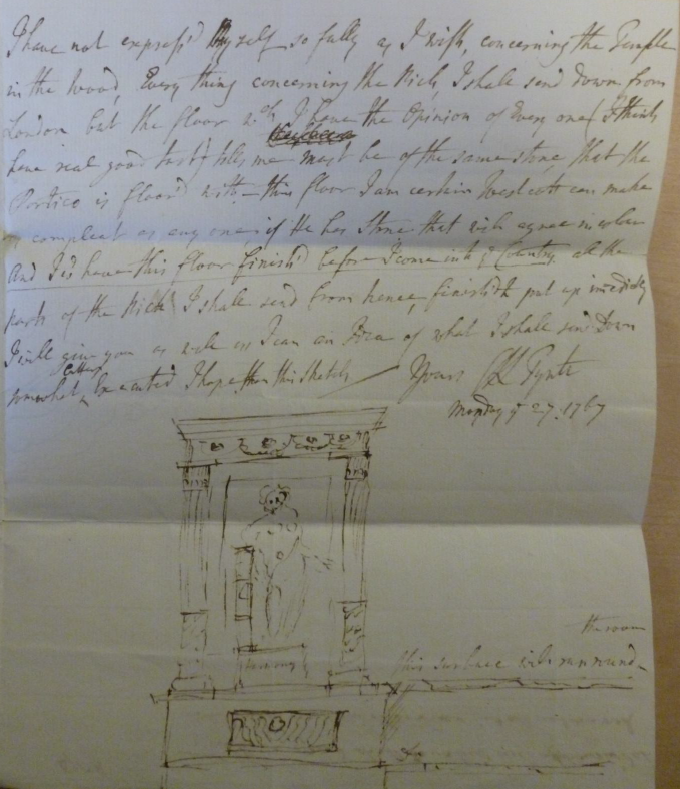 I have not express'd Myself so fully as I wish, concerning the Temple
in the Wood, Every thing concerning the Nich, I shall send down from
London but the floor wch I have the Opinion of Every one (I think
have real good tast) tells me must be of the same stone, that the
Portico is floor'd with – this floor I am certain Westcott can make
as compleat as any one, if He has Stone that will agree in colour
And I'd have this floor finish'd before I come into ye Country. all the
parts of the Nich I shall send from hence, finish'd & put up imediatly
I will give you as well as I can an Idea of what I shall send Down
somewhat better Executed I hope than this Sketch
Yours
Tynte
Monday ye 27: 1767
the room
this surbace will run round